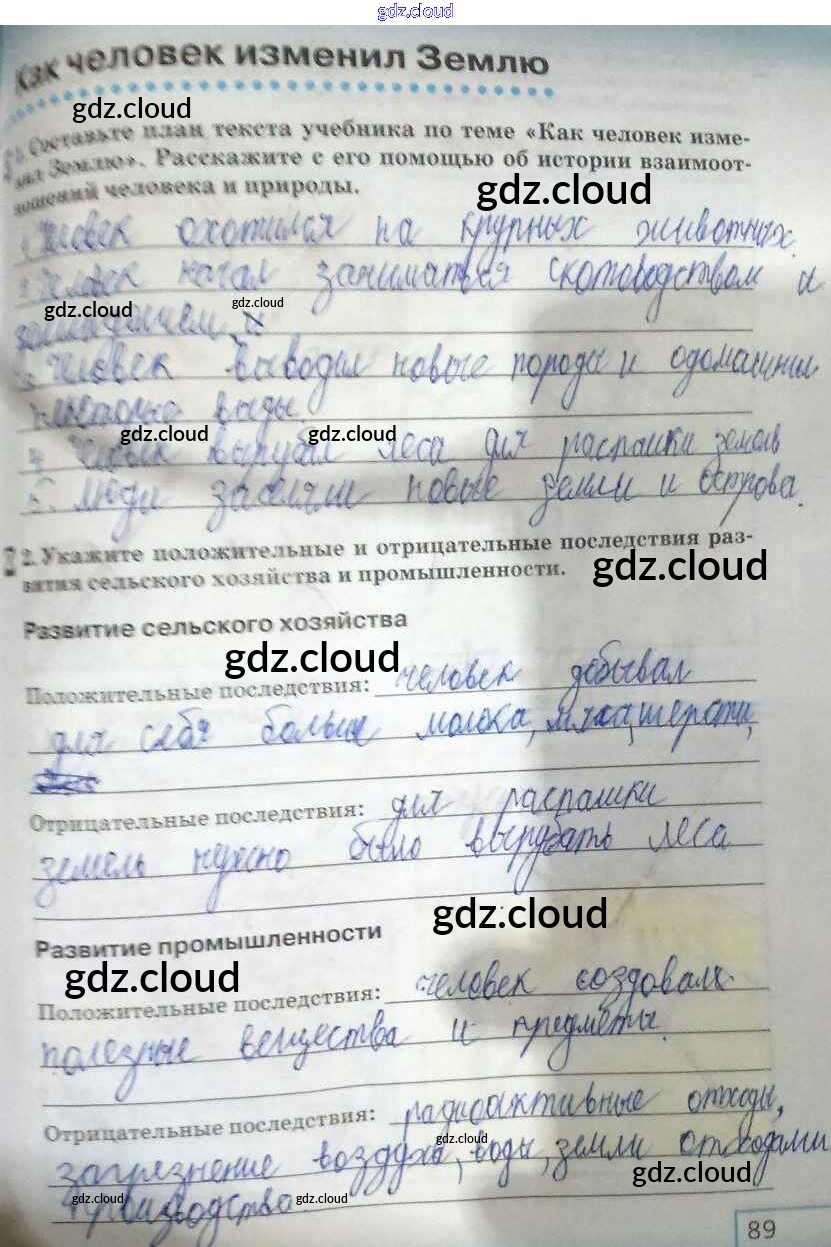 gdz.cloud
Как человек изменил Землю
gdz.cloud
1. Составьте план текста учебника по теме «Как человек изме-
нил Землю». Расскажите с его помощью об истории взаимоот-
ношений человека и природы.
gdz.cloud
1. Человек охотился на крупных животных.
2. Человек начал заниматься скотоводством и
gdz.cloud gdz.cloud
земледелием
3. Человек выводил новые породы и одомашнил
некоторые виды
gdz.cloud gdz.cloud
4. Человек вырубал леса для распашки земель
5. Люди заселяли новые земли и острова.
2. Укажите положительные и отрицательные последствия раз-
вития сельского хозяйства и промышленности.
gdz.cloud
Развитие сельского хозяйства
gdz.cloud
Положительные последствия: человек добывал
для себя больше молока, мяса, шерсти,
Отрицательные последствия: для распашки
земель нужно было вырубать леса.
gdz.cloud
Развитие промышленности
gdz.cloud
Положительные последствия: человек создовалх
полезные вещества и предметы.
Отрицательные последствия: радиоактивные отходы,
gdz.cloud
загрезнение воздуха, воды, земли отходами
gdz.cloud
производства
gdz.cloud gdz.cloud
89